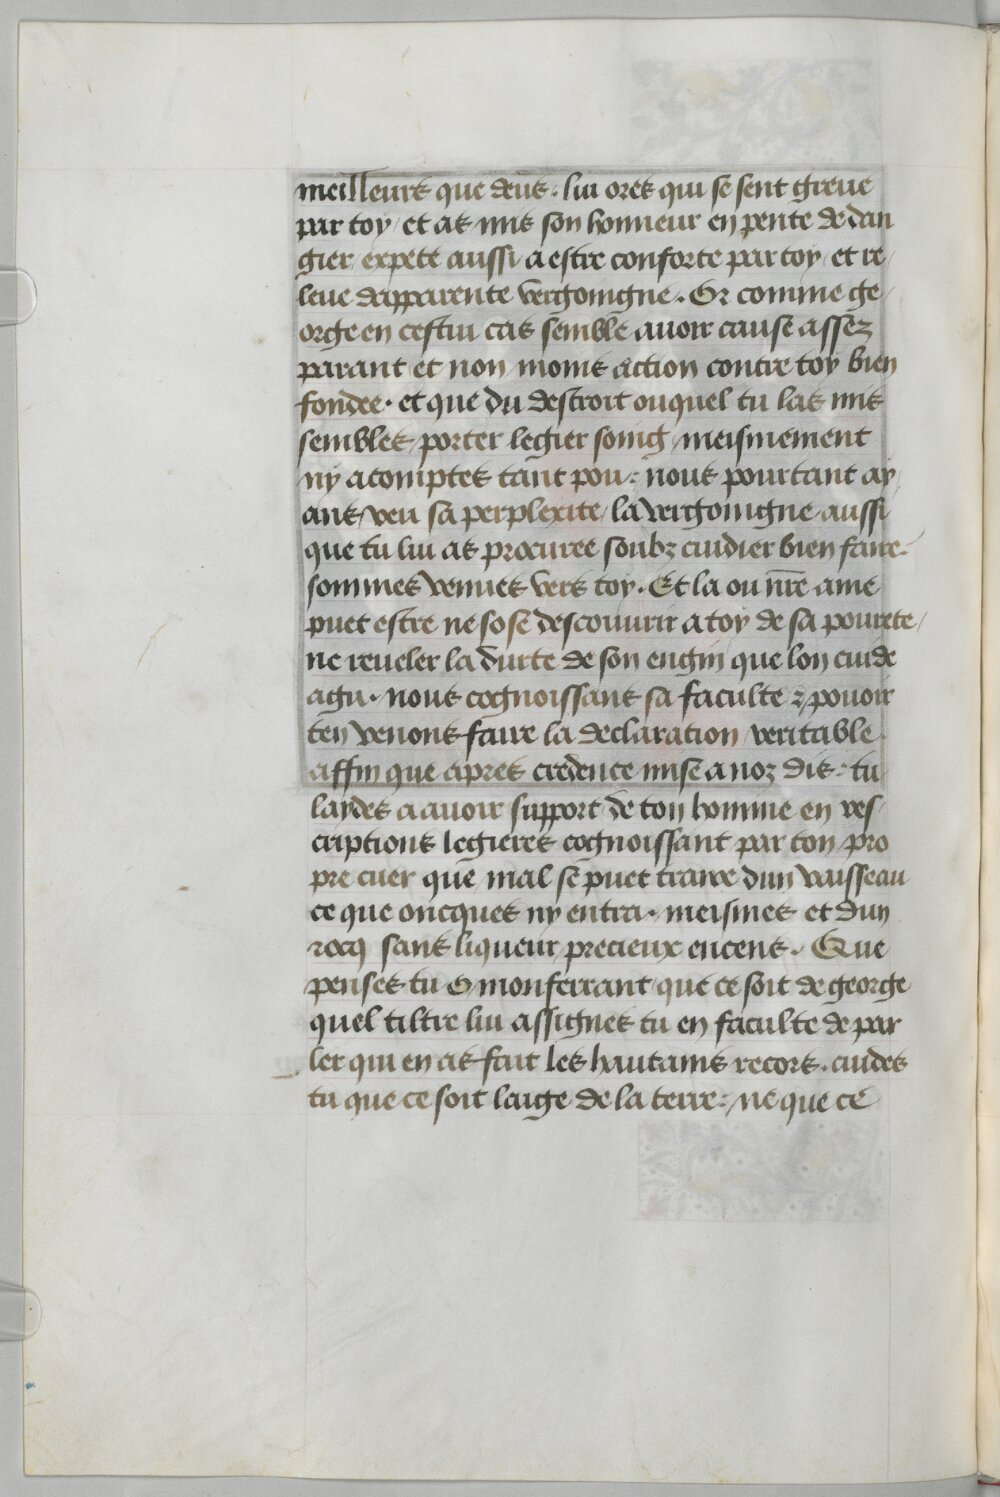 meilleurs que deus. lui ores qui se sent greue
par toy / et as mis son honneur en pente de dan
gier / expete aussi a estre conforte par toy / et re/
leue dapparente vergoingne. Or comme ge/
orge en cestui cas semble auoir cause assez
parant et non moins action contre toy bien
fondee. et que du destroit ouquel tu las mis
sembles porter legier soing / meismement
ny acomptes tant pou: nous pourtant ay/
ans veu sa perplexite / la vergoingne aussi
que tu lui as procuree soubz cuidier bien faire.
sommes venues vers toy. Et la ou nr̄e ame
puet estre ne sose descouurir a toy de sa pourete/
ne reueler la durte de son engin que lon cuide
agu. nous cognoissans sa faculte ⁊ pouoir
ten venons faire la declaration veritable.
affin que apres credence mise a noz dis: tu
laydes a auoir support de ton homme en res/
criptions legieres cognoissant par ton pro
pre cuer que mal se puet traire dun vaisseau
ce que oncques ny entra. meismes et dun
rocq sans liqueur precieux encens. Que
penses tu o monferrant que ce soit de george
quel tiltre lui assignes tu en faculte de par
ler qui en as fait les haultains recors. cuides
tu que ce soit laige de la terre: ne que ce